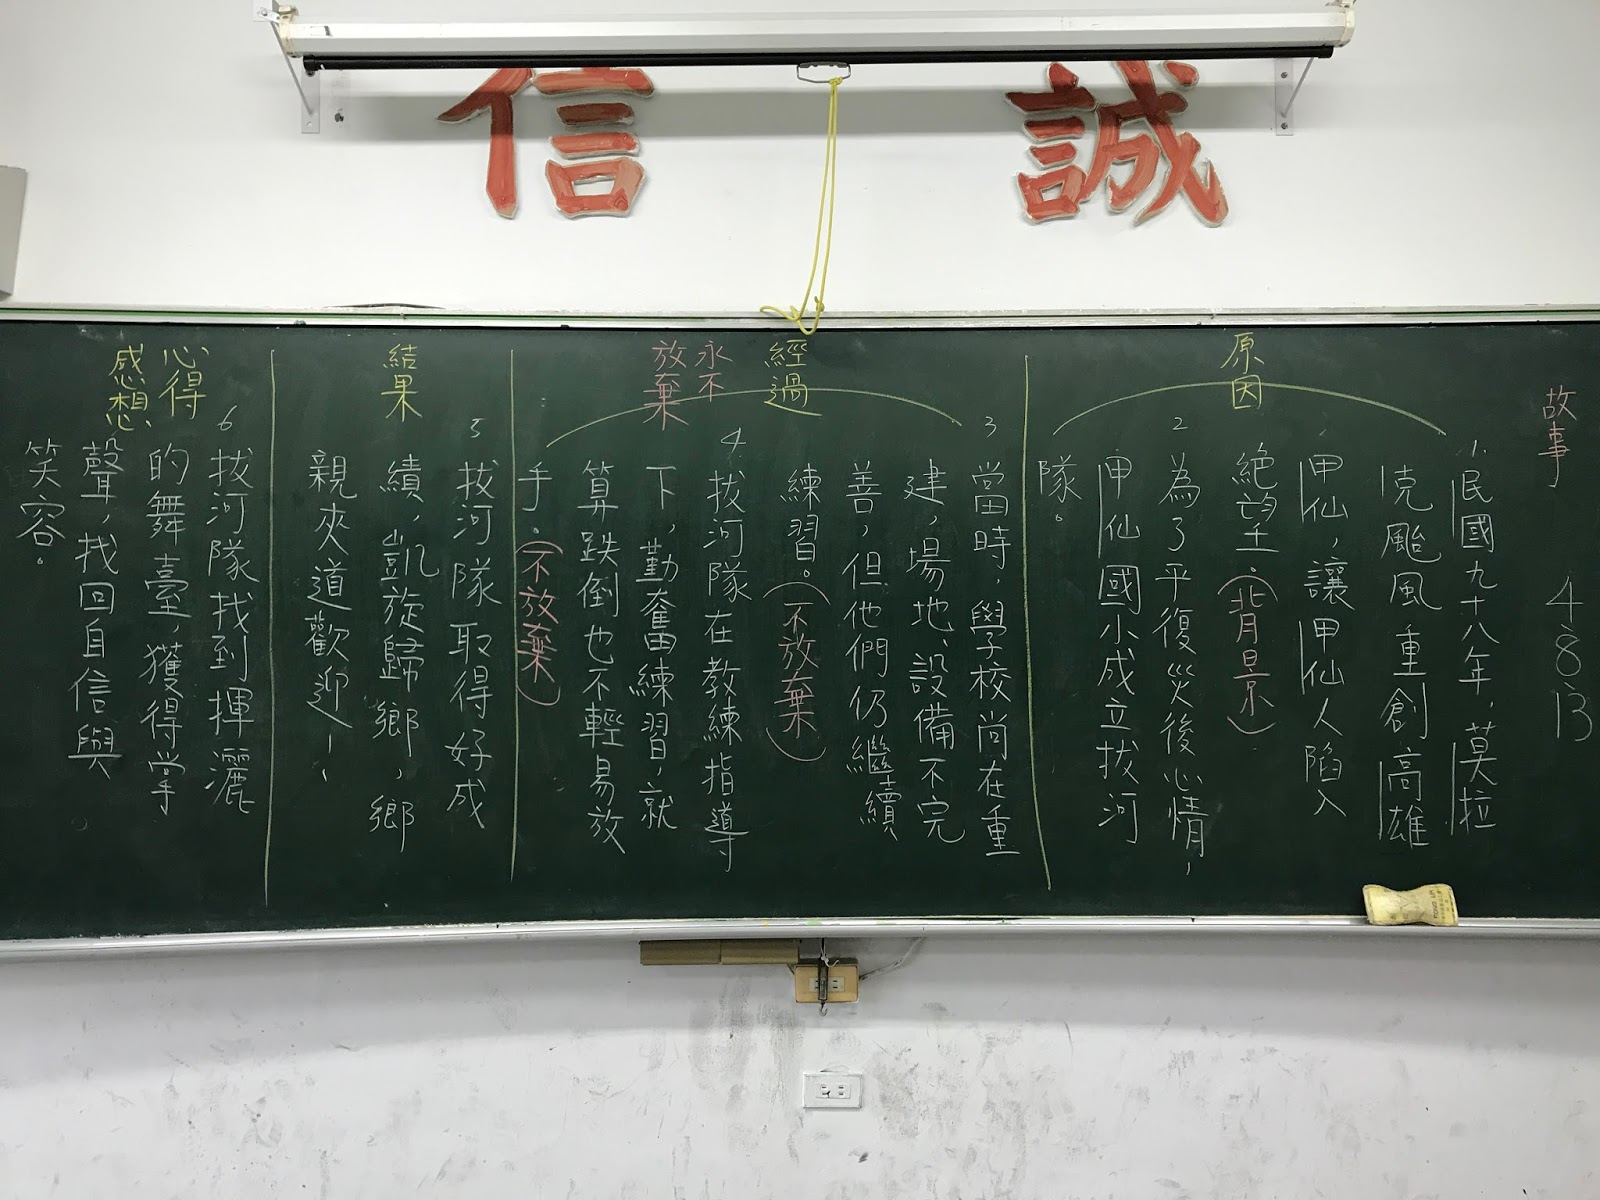 誠信
故事
4 8 13
原因
1.民國九十八年，莫拉
克颱風重創高雄
甲仙，讓甲仙人陷入
絕望。(背景)
2 為了平復災後心情，
甲仙國小成立拔河
隊。
經過
永不
放棄
3 當時，學校尚在重
建，場地、設備不完
善，但他們仍繼續
練習。(不放棄)
4 拔河隊在教練指導
下，勤奮練習，就
算跌倒也不輕易放
手。(不放棄)
結果
5 拔河隊取得好成
績，凱旋歸鄉，鄉
親夾道歡迎！
心得
感想
6 拔河隊找到揮灑
的舞臺，獲得掌
聲，找回自信與
笑容。